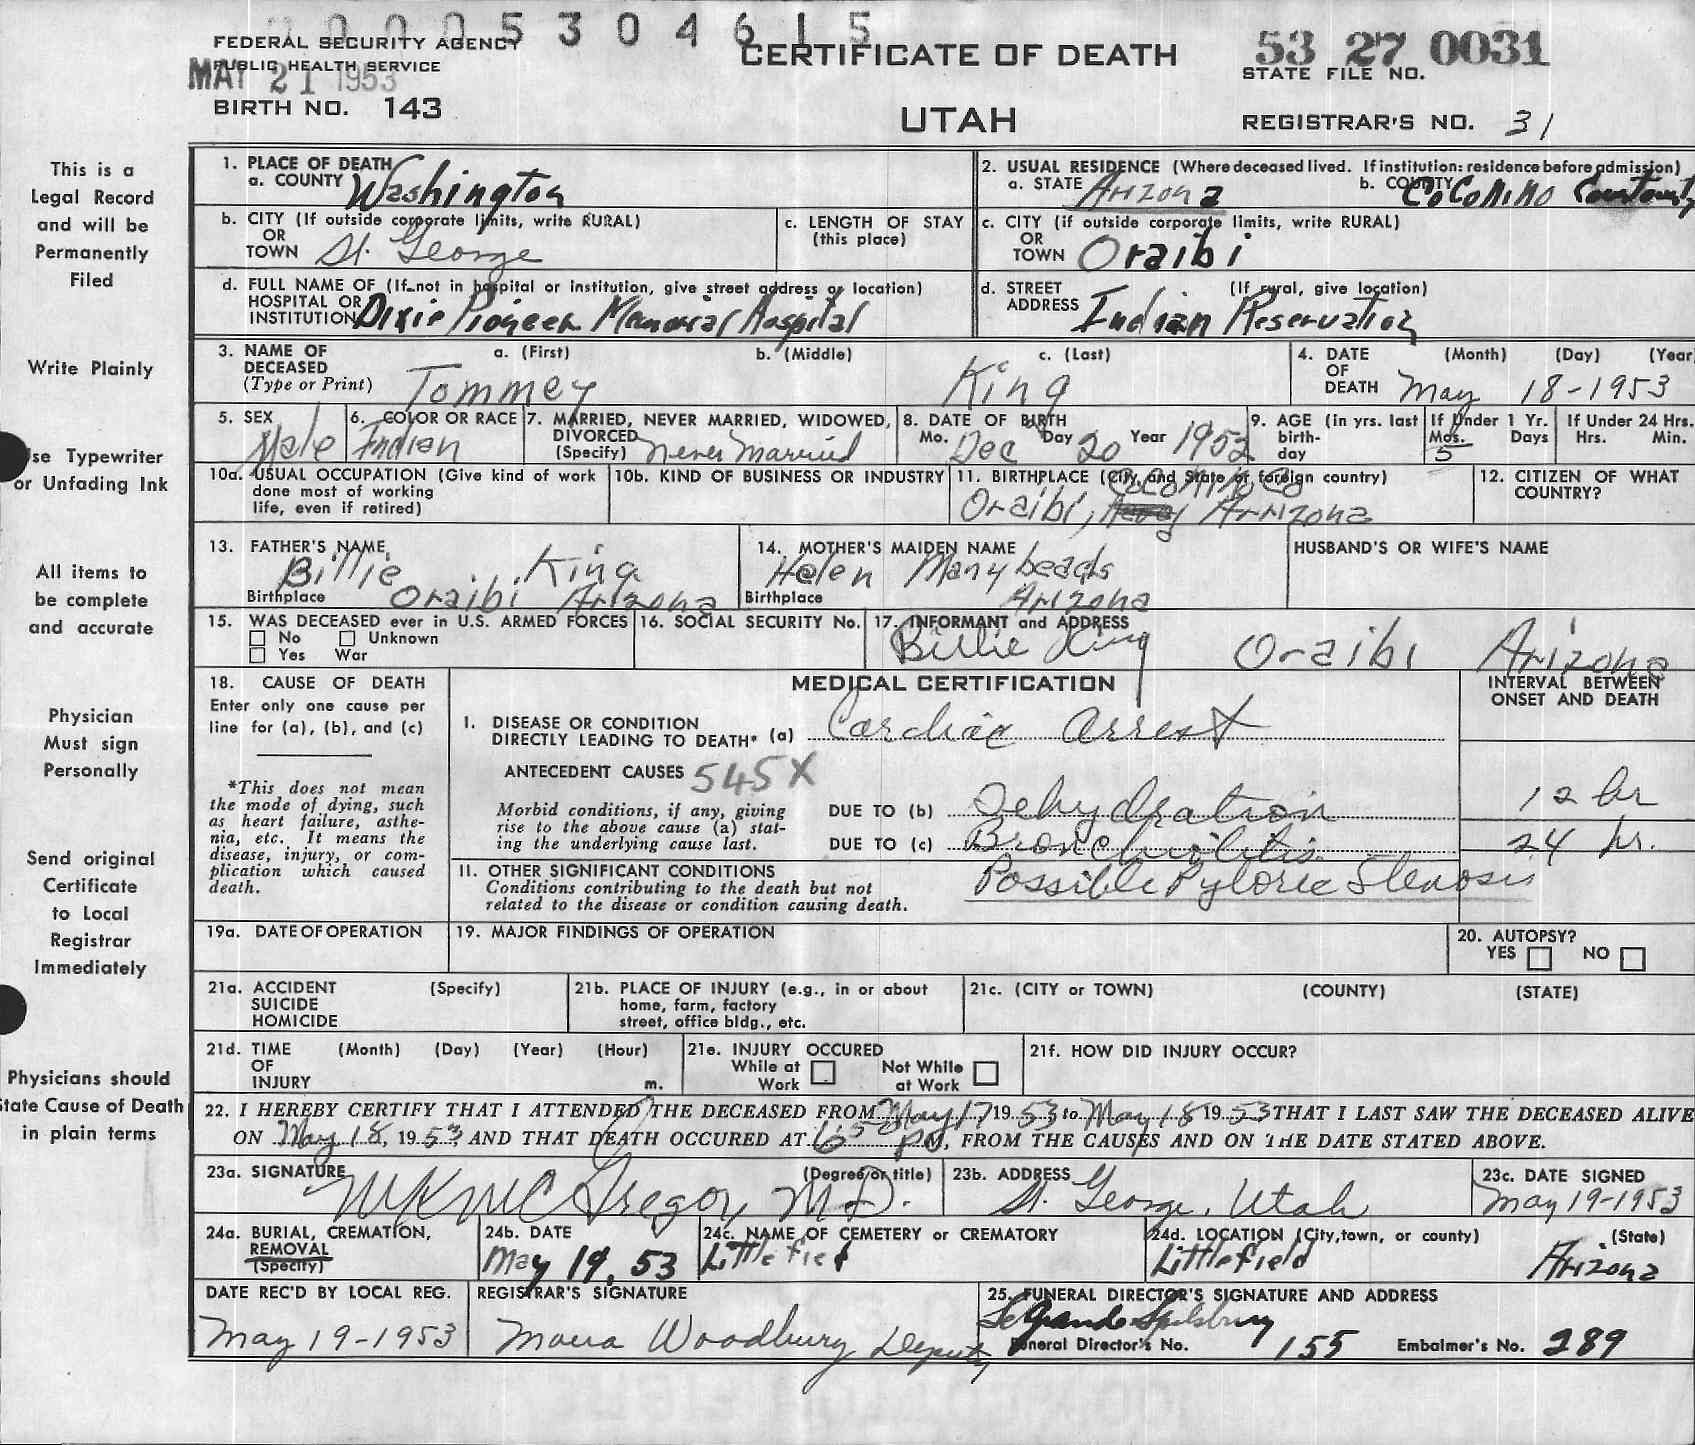 0005304615
FEDERAL SECURITY AGENCY
PUBLIC HEALTH SERVICE
MAY 21 1953
BIRTH NO. 143
CERTIFICATE OF DEATH
UTAH
53 27 0031
STATE FILE NO.
REGISTRAR'S NO. 31
This is a
Legal Record
and will be
Permanently
Filed
Write Plainly
se Typewriter
or Unfading Ink
All items to
be complete
and accurate
Physician
Must sign
Personally
Send original
Certificate
to Local
Registrar
Immediately
Physicians should
tate Cause of Death
in plain terms
1. PLACE OF DEATH
a. COUNTY Washington
2. USUAL RESIDENCE (Where deceased lived. If institution: residence before admission)
a. STATE Arizona b. COUNTY Coconino
b. CITY (If outside corporate limits, write RURAL)
OR
TOWN St. George
c. LENGTH OF STAY
(this place)
c. CITY (if outside corporate limits, write RURAL)
OR
TOWN Oraibi
d. FULL NAME OF (If not in hospital or institution, give street address or location)
HOSPITAL OR
INSTITUTION Dixie Pioneer Memorial Hospital
d. STREET (If rural, give location)
ADDRESS Indian Reservation
3. NAME OF a. (First) b. (Middle) c. (Last)
DECEASED
(Type or Print) Tommey King
4. DATE (Month) (Day) (Year
OF
DEATH May 18-1953
5. SEX
Male
6. COLOR OR RACE
Indian
7. MARRIED, NEVER MARRIED, WIDOWED,
DIVORCED
(Specify) Never Married
8. DATE OF BIRTH
Mo. Dec Day 20 Year 1952
9. AGE (in yrs. last
birth-
day
If Under 1 Yr.
Mos. Days
5
If Under 24 Hrs.
Hrs. Min.
10a. USUAL OCCUPATION (Give kind of work
done most of working
life, even if retired)
10b. KIND OF BUSINESS OR INDUSTRY
11. BIRTHPLACE (City and State or foreign country)
Oraibi, Arizona
12. CITIZEN OF WHAT
COUNTRY?
13. FATHER'S NAME
Billie King
Birthplace Oraibi Arizona
14. MOTHER'S MAIDEN NAME
Helen Manybeads
Birthplace Arizona
HUSBAND'S OR WIFE'S NAME
15. WAS DECEASED ever in U.S. ARMED FORCES
No Unknown
Yes War
16. SOCIAL SECURITY No.
17. INFORMANT and ADDRESS
Billie King Oraibi Arizona
18. CAUSE OF DEATH
Enter only one cause per
line for (a), (b), and (c)
*This does not mean
the mode of dying, such
as heart failure, asthe-
nia, etc. It means the
disease, injury, or com-
plication which caused
death.
MEDICAL CERTIFICATION
INTERVAL BETWEEN
ONSET AND DEATH
I. DISEASE OR CONDITION
DIRECTLY LEADING TO DEATH* (a) Cardiac arrest
ANTECEDENT CAUSES 545X
Morbid conditions, if any, giving
rise to the above cause (a) stat-
ing the underlying cause last.
DUE TO (b) Dehydration 12 hr
DUE TO (c) Bronchiolitis 24 hr.
II. OTHER SIGNIFICANT CONDITIONS
Conditions contributing to the death but not
related to the disease or condition causing death.
Possible Pyloric Stenosis
19a. DATE OF OPERATION
19. MAJOR FINDINGS OF OPERATION
20. AUTOPSY?
YES NO
21a. ACCIDENT (Specify)
SUICIDE
HOMICIDE
21b. PLACE OF INJURY (e.g., in or about
home, farm, factory
street, office bldg., etc.
21c. (CITY or TOWN) (COUNTY) (STATE)
21d. TIME (Month) (Day) (Year) (Hour)
OF
INJURY m.
21e. INJURY OCCURED
While at Work
Not While at Work
21f. HOW DID INJURY OCCUR?
22. I HEREBY CERTIFY THAT I ATTENDED THE DECEASED FROM May 17 19 53 to May 18 19 53 THAT I LAST SAW THE DECEASED ALIVE
ON May 18, 19 53 AND THAT DEATH OCCURED AT PM, FROM THE CAUSES AND ON THE DATE STATED ABOVE.
23a. SIGNATURE (Degree or title)
McGregor, M.D.
23b. ADDRESS
St. George, Utah
23c. DATE SIGNED
May 19-1953
24a. BURIAL, CREMATION,
REMOVAL
(Specify)
24b. DATE
May 19, 53
24c. NAME OF CEMETERY or CREMATORY
Littlefield
24d. LOCATION (City, town, or county) (State)
Littlefield Arizona
DATE REC'D BY LOCAL REG.
May 19-1953
REGISTRAR'S SIGNATURE
Woodbury Deputy
25. FUNERAL DIRECTOR'S SIGNATURE AND ADDRESS
LeGrande Spilsbury
Funeral Director's No. 155 Embalmer's No. 289